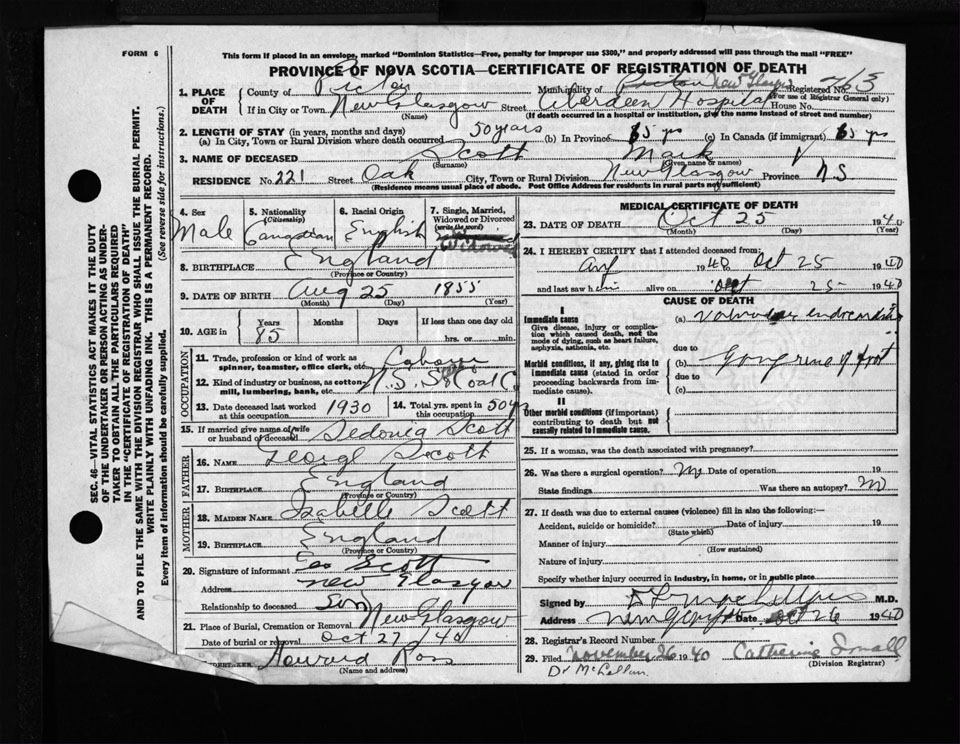 FORM 6
This form if placed in an envelope, marked "Dominion Statistics—Free, penalty for improper use $300," and properly addressed will pass through the mail "FREE"
PROVINCE OF NOVA SCOTIA—CERTIFICATE OF REGISTRATION OF DEATH
1. PLACE OF DEATH
County of Pictou Municipality of New Glasgow Registered No. 763
(For use of Registrar General only)
If in City or Town New Glasgow (Name) Street Aberdeen Hospital House No.
(If death occurred in a hospital or institution, give the name instead of street and number)
2. LENGTH OF STAY (in years, months and days)
(a) In City, Town or Rural Division where death occurred 50 years (b) In Province 65 yrs (c) In Canada (if immigrant) 65 yrs
3. NAME OF DECEASED Scott (Surname) Mark (Given name or names)
RESIDENCE No. 221 Street Oak City, Town or Rural Division New Glasgow Province N S
(Residence means usual place of abode. Post Office Address for residents in rural parts not sufficient)
4. Sex Male
5. Nationality (Citizenship) Canadian
6. Racial Origin English
7. Single, Married, Widowed or Divorced (write the word) Widowed
8. BIRTHPLACE England
(Province or Country)
9. DATE OF BIRTH Aug 25 1855
(Month) (Day) (Year)
10. AGE in Years 85 Months Days If less than one day old
hrs. or min.
OCCUPATION
11. Trade, profession or kind of work as spinner, teamster, office clerk, etc.
12. Kind of industry or business, as cotton-mill, lumbering, bank, etc. N. S. S & Coal C.
13. Date deceased last worked at this occupation 1930
14. Total yrs. spent in this occupation 50 yrs
15. If married give name of wife or husband of deceased Scott
FATHER
16. NAME George Scott
17. BIRTHPLACE England
(Province or Country)
MOTHER
18. MAIDEN NAME Isabelle Scott
19. BIRTHPLACE England
(Province or Country)
20. Signature of informant Geo Scott
Address New Glasgow
Relationship to deceased Son
21. Place of Burial, Cremation or Removal New Glasgow
Date of burial or removal Oct 27 40
UNDERTAKER Howard Ross
(Name and address)
MEDICAL CERTIFICATE OF DEATH
23. DATE OF DEATH Oct 25 1940
(Month) (Day) (Year)
24. I HEREBY CERTIFY that I attended deceased from:
1940 Oct 25 1940
and last saw him alive on Oct 25 1940
CAUSE OF DEATH
I
Immediate cause
Give disease, injury or complication which caused death, not the mode of dying, such as heart failure, asphyxia, asthenia, etc.
(a) endocarditis
due to
Morbid conditions, if any, giving rise to immediate cause (stated in order proceeding backwards from immediate cause).
(b) Gangrene of foot
due to
(c)
II
Other morbid conditions (if important) contributing to death but not causally related to immediate cause.
25. If a woman, was the death associated with pregnancy?
26. Was there a surgical operation? No Date of operation 19
State findings Was there an autopsy? No
27. If death was due to external causes (violence) fill in also the following:—
Accident, suicide or homicide? Date of injury 19
(State which)
Manner of injury
(How sustained)
Nature of injury
Specify whether injury occurred in industry, in home, or in public place
Signed by M.D.
Address Date Oct 26 1940
28. Registrar's Record Number
29. Filed November 26 1940 Catherine Small
(Division Registrar)
Dr McLellan
SEC. 46—VITAL STATISTICS ACT MAKES IT THE DUTY
OF THE UNDERTAKER OR PERSON ACTING AS UNDERTAKER
TO OBTAIN ALL THE PARTICULARS REQUIRED
IN THE "CERTIFICATE OF REGISTRATION OF DEATH"
AND TO FILE THE SAME WITH THE DIVISION REGISTRAR WHO SHALL ISSUE THE BURIAL PERMIT.
WRITE PLAINLY WITH UNFADING INK. THIS IS A PERMANENT RECORD.
Every item of information should be carefully supplied. (See reverse side for instructions.)